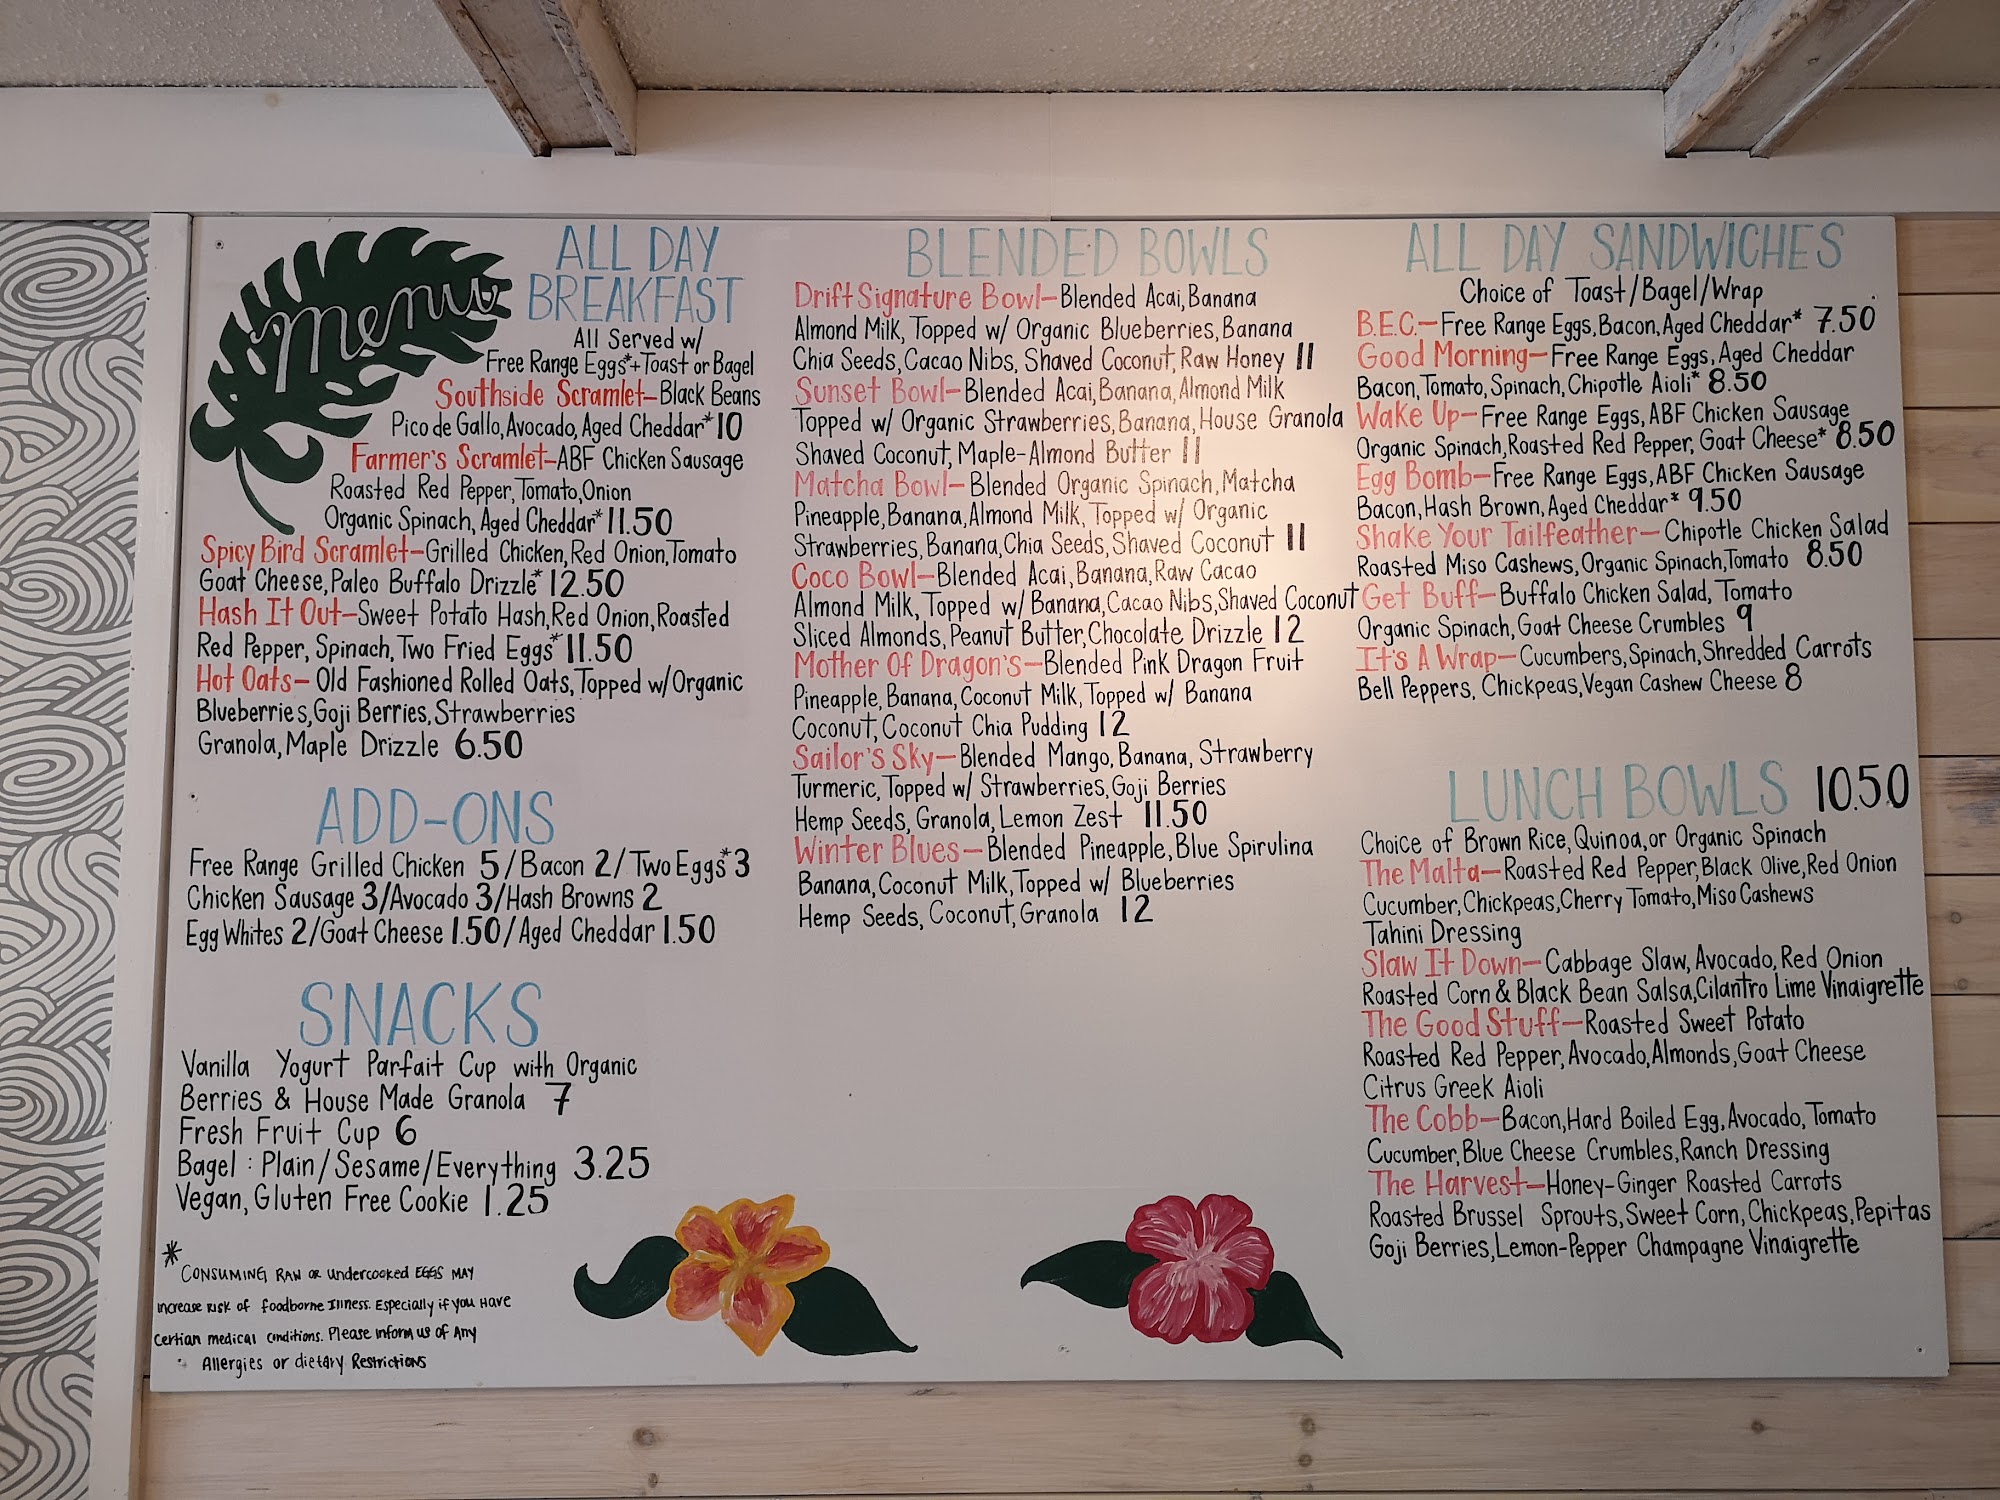 menu
ALL DAY
BREAKFAST
All Served w/
Free Range Eggs*+Toast or Bagel
Southside Scramlet-Black Beans
Pico de Gallo, Avocado, Aged Cheddar* 10
Farmer's Scramlet-ABF Chicken Sausage
Roasted Red Pepper, Tomato, Onion
Organic Spinach, Aged Cheddar* 11.50
Spicy Bird Scramlet-Grilled Chicken, Red Onion, Tomato
Goat Cheese, Paleo Buffalo Drizzle* 12.50
Hash It Out-Sweet Potato Hash, Red Onion, Roasted
Red Pepper, Spinach, Two Fried Eggs* 11.50
Hot Oats- Old Fashioned Rolled Oats, Topped w/ Organic
Blueberries, Goji Berries, Strawberries
Granola, Maple Drizzle 6.50
ADD-ONS
Free Range Grilled Chicken 5/Bacon 2/Two Eggs* 3
Chicken Sausage 3/Avocado 3/Hash Browns 2
Egg Whites 2/Goat Cheese 1.50/Aged Cheddar 1.50
SNACKS
Vanilla Yogurt Parfait Cup with Organic
Berries & House Made Granola 7
Fresh Fruit Cup 6
Bagel : Plain/Sesame/Everything 3.25
Vegan, Gluten Free Cookie 1.25
* CONSUMING RAW OR undercooked EGGS MAY
increase RISK of foodborne Illness. Especially if you Have
certian medical conditions. Please inform us of Any
Allergies or dietary Restrictions
BLENDED BOWLS
Drift Signature Bowl-Blended Acai, Banana
Almond Milk, Topped w/ Organic Blueberries, Banana
Chia Seeds, Cacao Nibs, Shaved Coconut, Raw Honey 11
Sunset Bowl-Blended Acai, Banana, Almond Milk
Topped w/ Organic Strawberries, Banana, House Granola
Shaved Coconut, Maple-Almond Butter 11
Matcha Bowl-Blended Organic Spinach, Matcha
Pineapple, Banana, Almond Milk, Topped w/ Organic
Strawberries, Banana, Chia Seeds, Shaved Coconut 11
Coco Bowl-Blended Acai, Banana, Raw Cacao
Almond Milk, Topped w/ Banana, Cacao Nibs, Shaved Coconut
Sliced Almonds, Peanut Butter, Chocolate Drizzle 12
Mother Of Dragon's-Blended Pink Dragon Fruit
Pineapple, Banana, Coconut Milk, Topped w/ Banana
Coconut, Coconut Chia Pudding 12
Sailor's Sky-Blended Mango, Banana, Strawberry
Turmeric, Topped w/ Strawberries, Goji Berries
Hemp Seeds, Granola, Lemon Zest 11.50
Winter Blues-Blended Pineapple, Blue Spirulina
Banana, Coconut Milk, Topped w/ Blueberries
Hemp Seeds, Coconut, Granola 12
ALL DAY SANDWICHES
Choice of Toast/Bagel/Wrap
B.E.C.-Free Range Eggs, Bacon, Aged Cheddar* 7.50
Good Morning-Free Range Eggs, Aged Cheddar
Bacon, Tomato, Spinach, Chipotle Aioli* 8.50
Wake Up-Free Range Eggs, ABF Chicken Sausage
Organic Spinach, Roasted Red Pepper, Goat Cheese* 8.50
Egg Bomb-Free Range Eggs, ABF Chicken Sausage
Bacon, Hash Brown, Aged Cheddar* 9.50
Shake Your Tailfeather-Chipotle Chicken Salad
Roasted Miso Cashews, Organic Spinach, Tomato 8.50
Get Buff-Buffalo Chicken Salad, Tomato
Organic Spinach, Goat Cheese Crumbles 9
It's A Wrap-Cucumbers, Spinach, Shredded Carrots
Bell Peppers, Chickpeas, Vegan Cashew Cheese 8
LUNCH BOWLS 10.50
Choice of Brown Rice, Quinoa, or Organic Spinach
The Malta-Roasted Red Pepper, Black Olive, Red Onion
Cucumber, Chickpeas, Cherry Tomato, Miso Cashews
Tahini Dressing
Slaw It Down-Cabbage Slaw, Avocado, Red Onion
Roasted Corn & Black Bean Salsa, Cilantro Lime Vinaigrette
The Good Stuff-Roasted Sweet Potato
Roasted Red Pepper, Avocado, Almonds, Goat Cheese
Citrus Greek Aioli
The Cobb-Bacon, Hard Boiled Egg, Avocado, Tomato
Cucumber, Blue Cheese Crumbles, Ranch Dressing
The Harvest-Honey-Ginger Roasted Carrots
Roasted Brussel Sprouts, Sweet Corn, Chickpeas, Pepitas
Goji Berries, Lemon-Pepper Champagne Vinaigrette